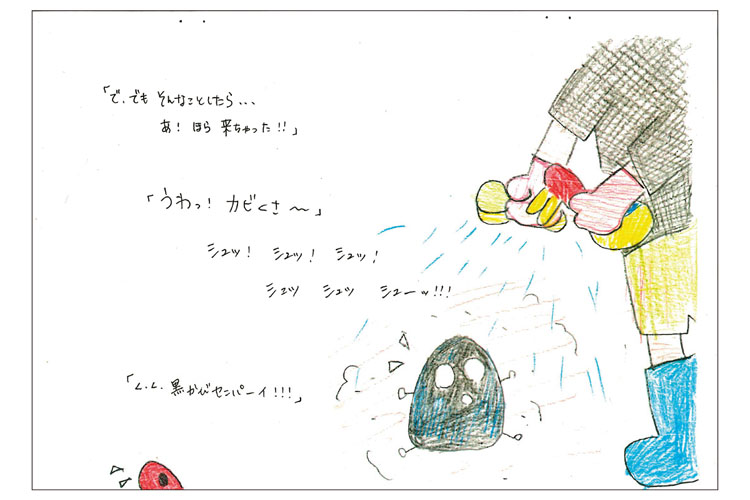 「で、でも そんなことしたら...
あ! ほら 来ちゃった!!」
「うわっ! カビくさ〜」
シュッ! シュッ! シュッ!
シュッ シュッ シューッ!!!
「く、く、黒かびセンパーイ!!!」